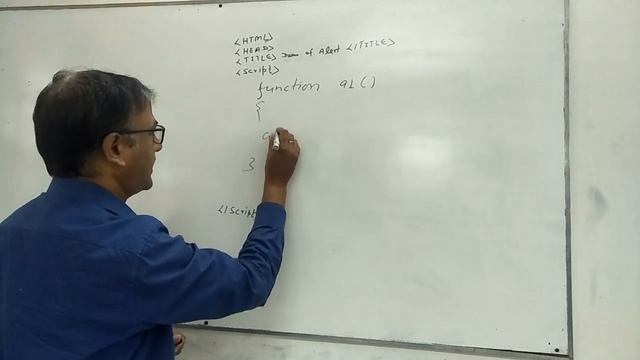 <HTML>
<HEAD>
<TITLE> Demo of Alert </TITLE>
<Script>
function al()
{
a
}
</Script